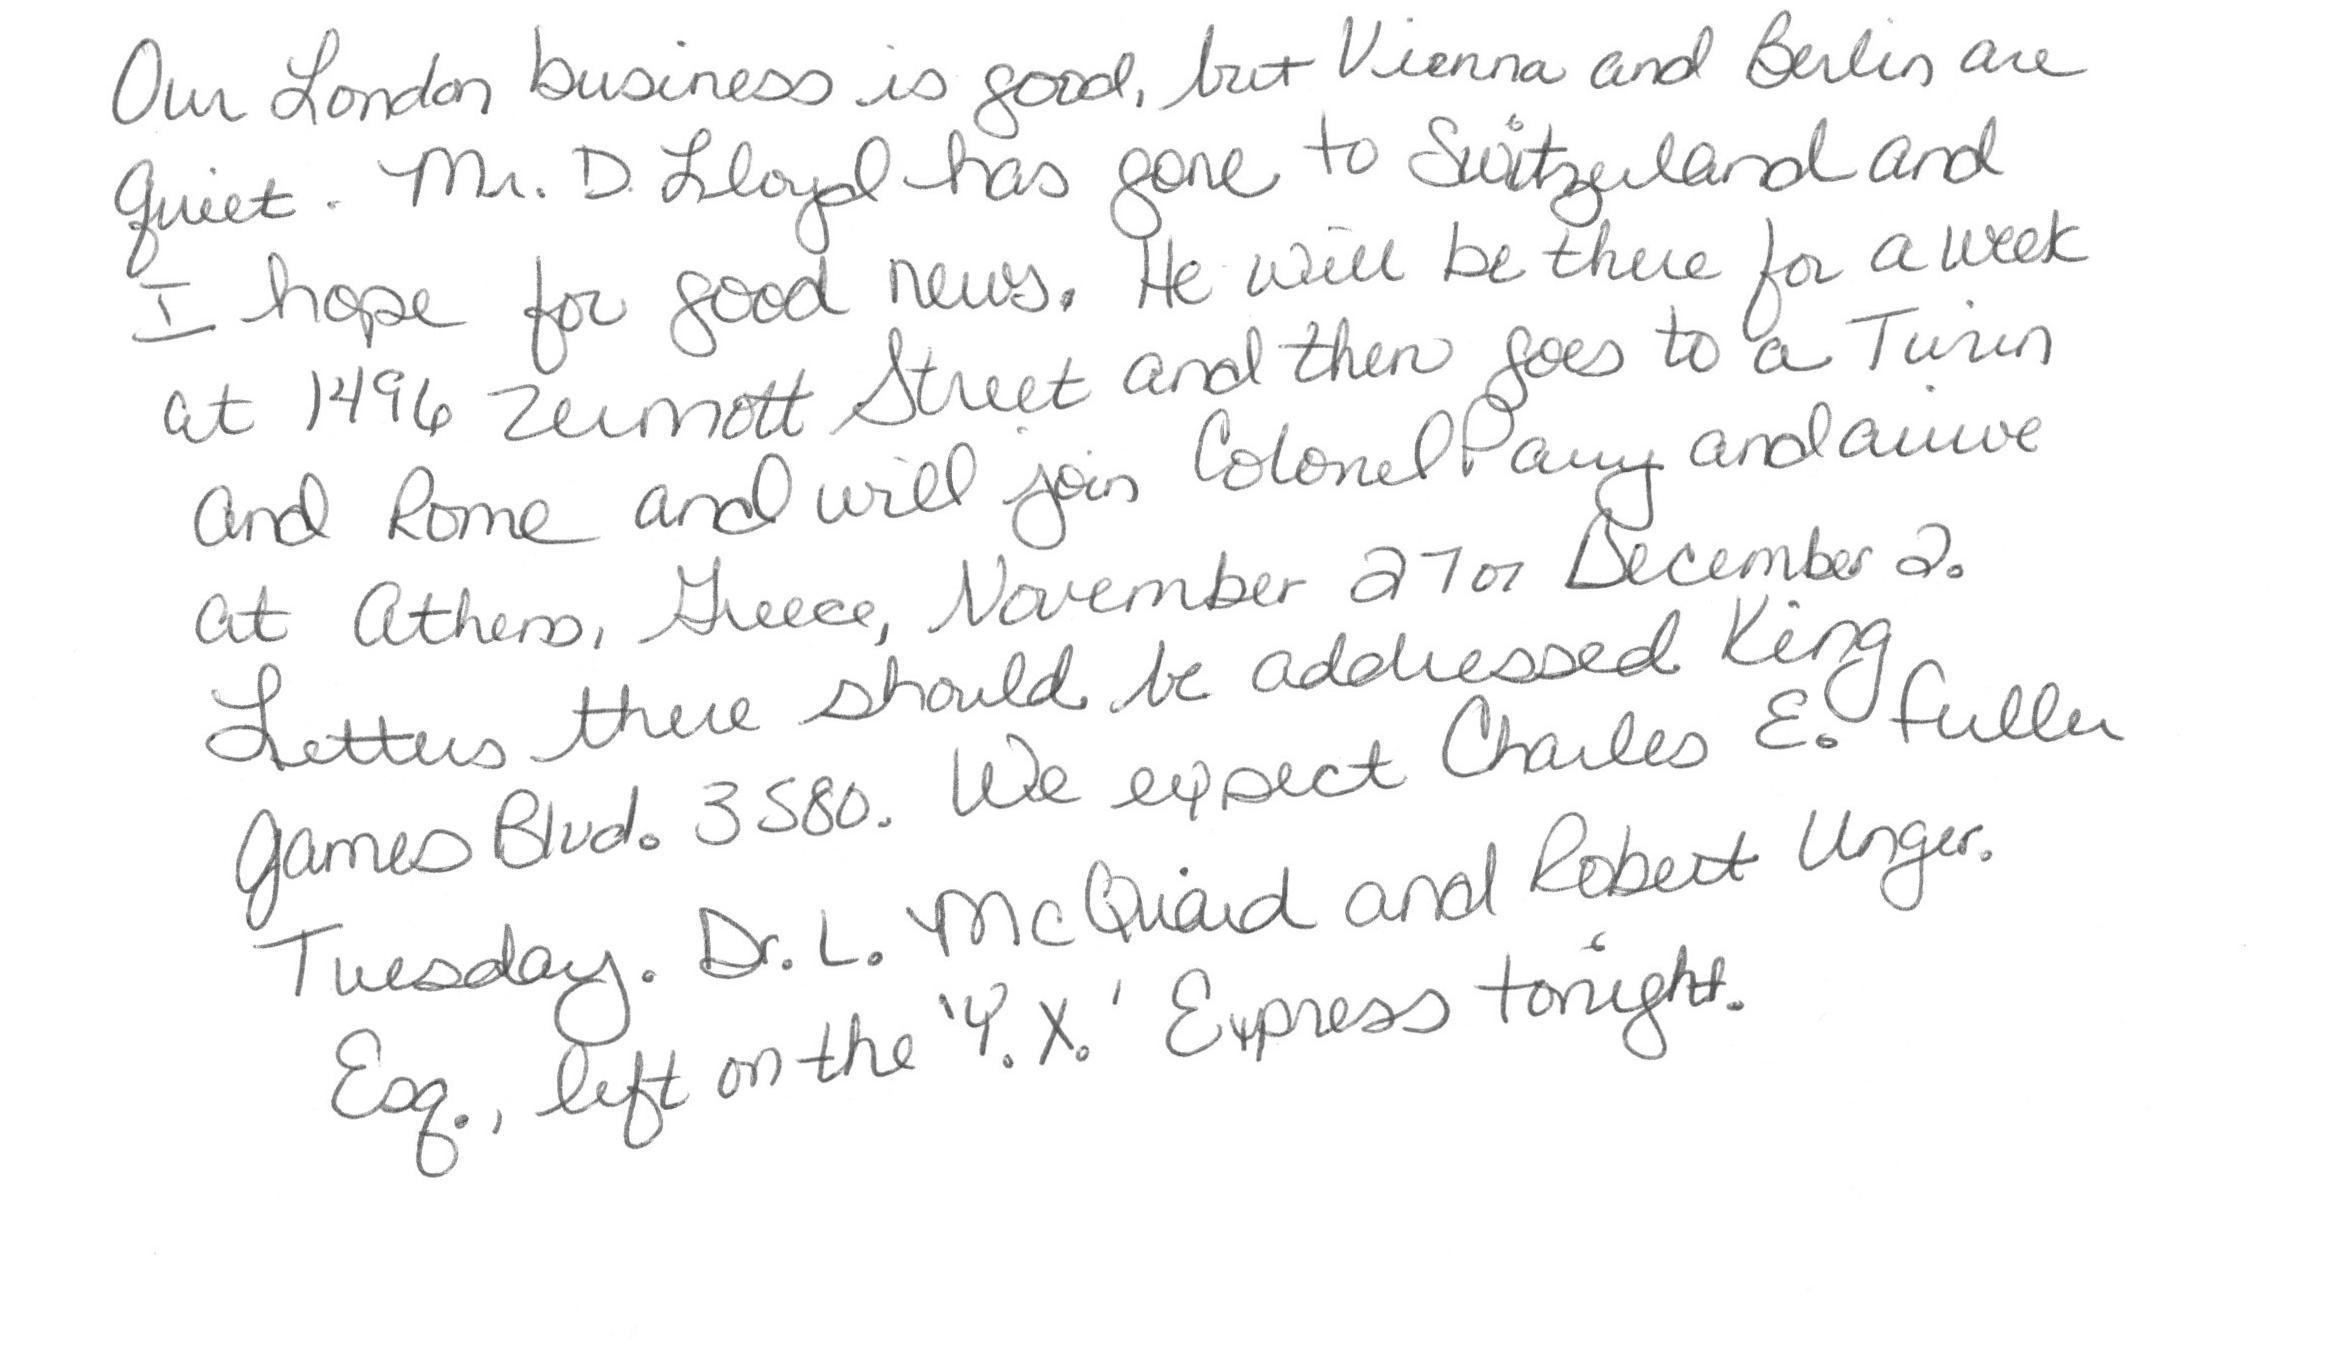 Our London business is good, but Vienna and Berlin are
quiet. Mr. D. Lloyd has gone to Switzerland and
I hope for good news. He will be there for a week
at 1496 Zermott Street and then goes to a Turin
and Rome and will join Colonel Parry and arrive
at Athens, Greece, November 27 or December 2.
Letters there should be addressed King
James Blvd. 3580. We expect Charles E. Fuller
Tuesday. Dr. L. McQuaid and Robert Unger.
Esq., left on the 'Y.X.' Express tonight.